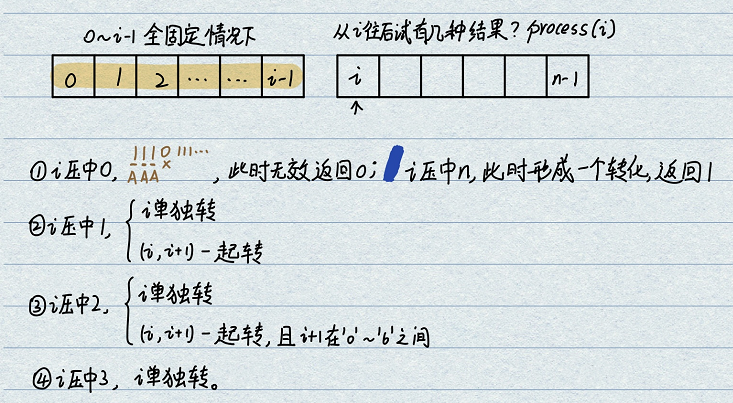 0~i-1 全固定情况下
从i往后试有几种结果? process(i)
0 1 2 ... ... i-1
i n-1
①i压中0, 1110111... AAA× ,此时无效返回0; i压中n,此时形成一个转化,返回1
②i压中1, {i单独转
(i,i+1)一起转
③i压中2, {i单独转
(i,i+1)一起转,且i+1在'0'~'6'之间
④i压中3, i单独转。